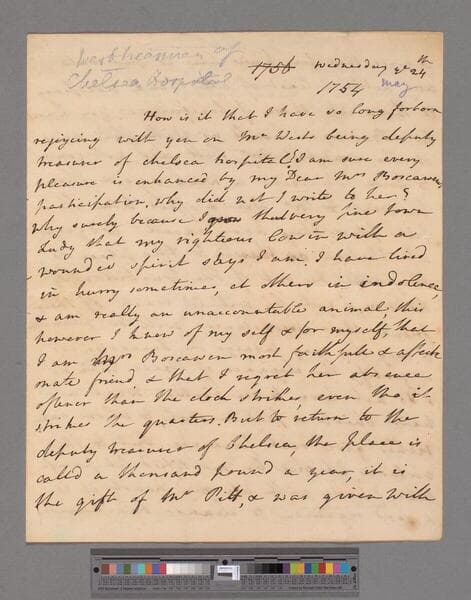 West treasurer of
Chelsea Hospital
1756 Wednesday ye 24th
1754 May
How is it that I have so long forborn
rejoycing with you on Mr Wests being deputy
treasurer of Chelsea hospital, I am sure every
pleasure is enhanced by my Dear Mrs Boscawen's
participation. why did not I write to her?
why surely because I grow that very fine Town
Lady that my righteous Cousin with a
wounded spirit says I am. I have lived
in hurry sometimes, at others in indolence,
& am really an unaccountable animal, this
however I know of my self & for myself, that
I am Mrs Boscawen most faithfull & affecti
onate friend, & that I regret her absence
oftener than the clock strikes, even tho it
strikes the quarters. But to return to the
deputy treasurer of Chelsea, the place is
calld a thousand pound a year, it is
the gift of Mr Pitt, & was given with